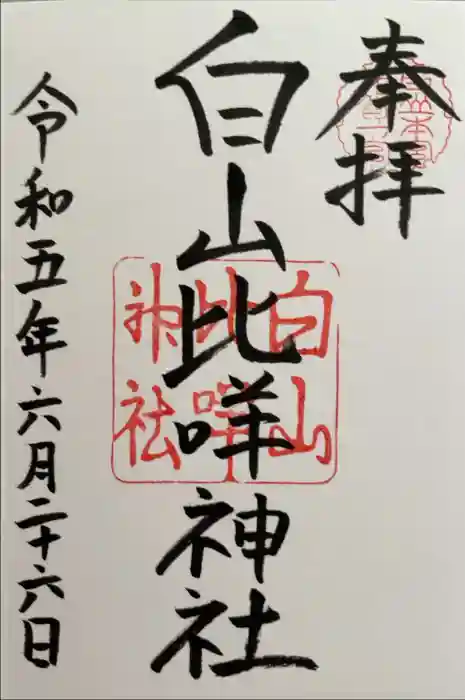 奉拝
白山比咩神社
白山
比咩
神社
令和五年六月二十六日